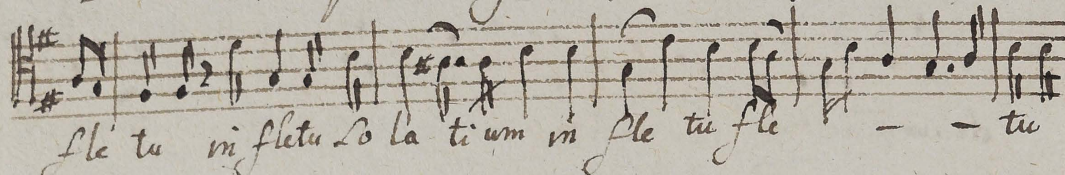 fle tu in fletu So la ti um in fle tu fle - - tu